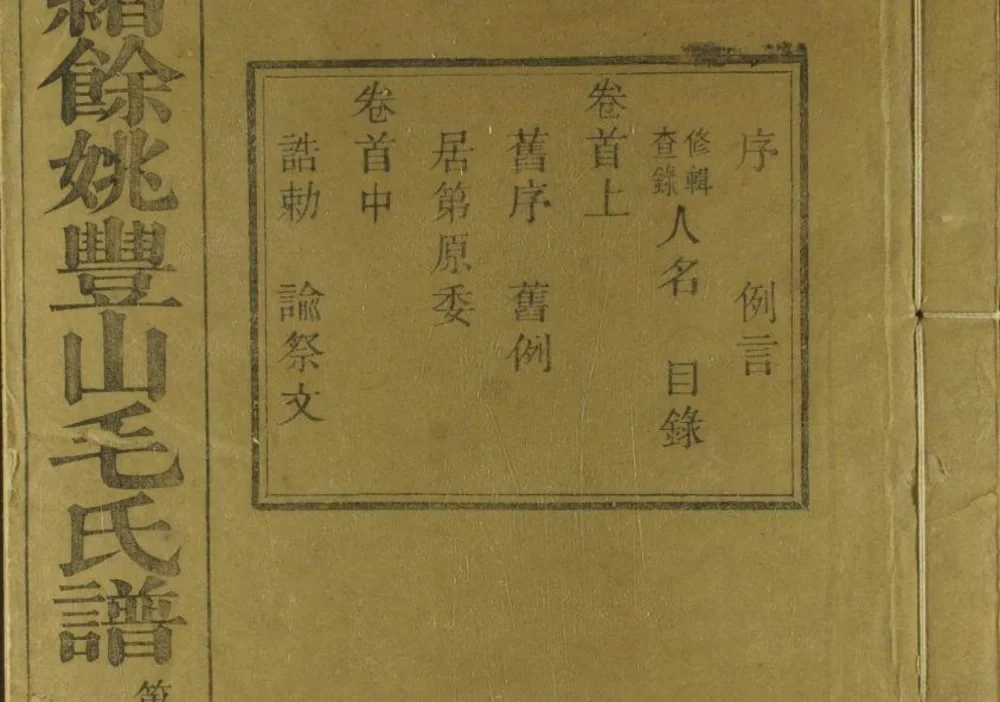 序 例言
修輯查錄人名 目錄
卷首上
舊序 舊例
居第原委
卷首中
誥勅 諭祭文
餘姚豐山毛氏譜
第